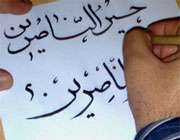 خير الناصرين
الناصرين